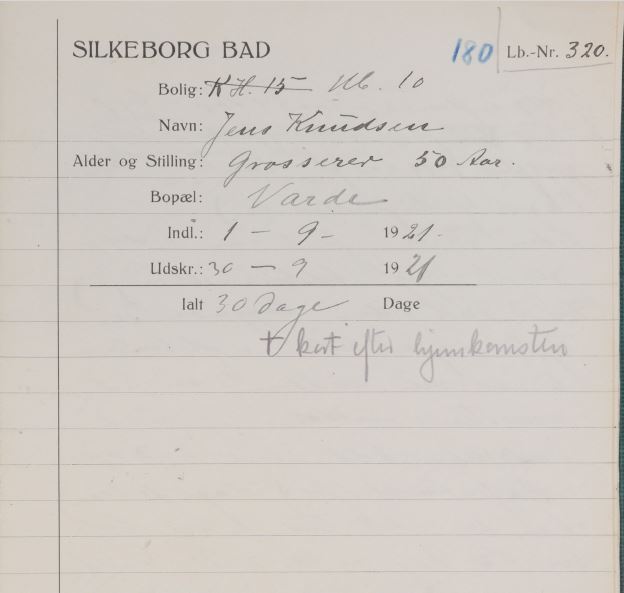 SILKEBORG BAD 180 Lb.-Nr. 320.
Bolig: K.H. 15 Ub. 10
Navn: Jens Knudsen
Alder og Stilling: Grosserer 50 Aar.
Bopæl: Varde
Indl.: 1 - 9 - 1921.
Udskr.: 30 - 9 1921
Ialt 30 Dage Dage
† kort efter hjemkomsten